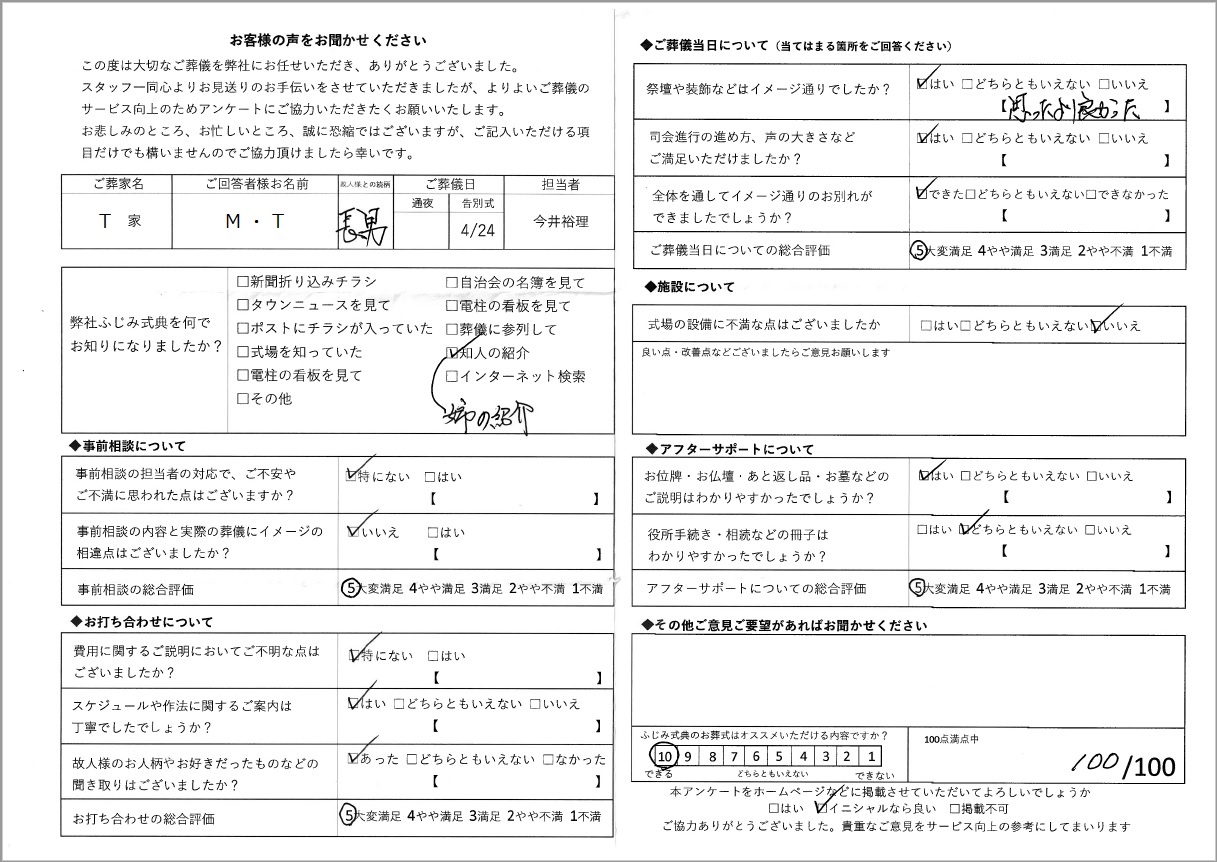 お客様の声をお聞かせください
この度は大切なご葬儀を弊社にお任せいただき、ありがとうございました。
スタッフ一同心よりお見送りのお手伝いをさせていただきましたが、よりよいご葬儀の
サービス向上のためアンケートにご協力いただきたくお願いいたします。
お悲しみのところ、お忙しいところ、誠に恐縮ではございますが、ご記入いただける項
目だけでも構いませんのでご協力頂けましたら幸いです。
ご葬家名 ご回答者様お名前 故人様との続柄 ご葬儀日 担当者
通夜 告別式
T 家 M・T 長男 4/24 今井裕理
弊社ふじみ式典を何で
お知りになりましたか？
□新聞折り込みチラシ □自治会の名簿を見て
□タウンニュースを見て □電柱の看板を見て
□ポストにチラシが入っていた □葬儀に参列して
□式場を知っていた ☑知人の紹介
□電柱の看板を見て □インターネット検索
□その他
姉の紹介
◆事前相談について
事前相談の担当者の対応で、ご不安や
ご不満に思われた点はございますか？
☑特にない □はい
【 】
事前相談の内容と実際の葬儀にイメージの
相違点はございましたか？
☑いいえ □はい
【 】
事前相談の総合評価 ⑤大変満足 4やや満足 3満足 2やや不満 1不満
◆お打ち合わせについて
費用に関するご説明においてご不明な点は
ございましたか？
☑特にない □はい
【 】
スケジュールや作法に関するご案内は
丁寧でしたでしょうか？
☑はい □どちらともいえない □いいえ
【 】
故人様のお人柄やお好きだったものなどの
聞き取りはございましたか？
☑あった □どちらともいえない □なかった
【 】
お打ち合わせの総合評価 ⑤大変満足 4やや満足 3満足 2やや不満 1不満
◆ご葬儀当日について（当てはまる箇所をご回答ください）
祭壇や装飾などはイメージ通りでしたか？
☑はい □どちらともいえない □いいえ
【思ったより良かった 】
司会進行の進め方、声の大きさなど
ご満足いただけましたか？
☑はい □どちらともいえない □いいえ
【 】
全体を通してイメージ通りのお別れが
できましたでしょうか？
☑できた□どちらともいえない□できなかった
【 】
ご葬儀当日についての総合評価 ⑤大変満足 4やや満足 3満足 2やや不満 1不満
◆施設について
式場の設備に不満な点はございましたか □はい□どちらともいえない☑いいえ
良い点・改善点などございましたらご意見お願いします
◆アフターサポートについて
お位牌・お仏壇・あと返し品・お墓などの
ご説明はわかりやすかったでしょうか？
☑はい □どちらともいえない □いいえ
【 】
役所手続き・相続などの冊子は
わかりやすかったでしょうか？
□はい ☑どちらともいえない □いいえ
【 】
アフターサポートについての総合評価 ⑤大変満足 4やや満足 3満足 2やや不満 1不満
◆その他ご意見ご要望があればお聞かせください
ふじみ式典のお葬式はオススメいただける内容ですか？
⑩ 9 8 7 6 5 4 3 2 1
できる どちらともいえない できない
100点満点中
100/100
本アンケートをホームページなどに掲載させていただいてよろしいでしょうか
□はい ☑イニシャルなら良い □掲載不可
ご協力ありがとうございました。貴重なご意見をサービス向上の参考にしてまいります